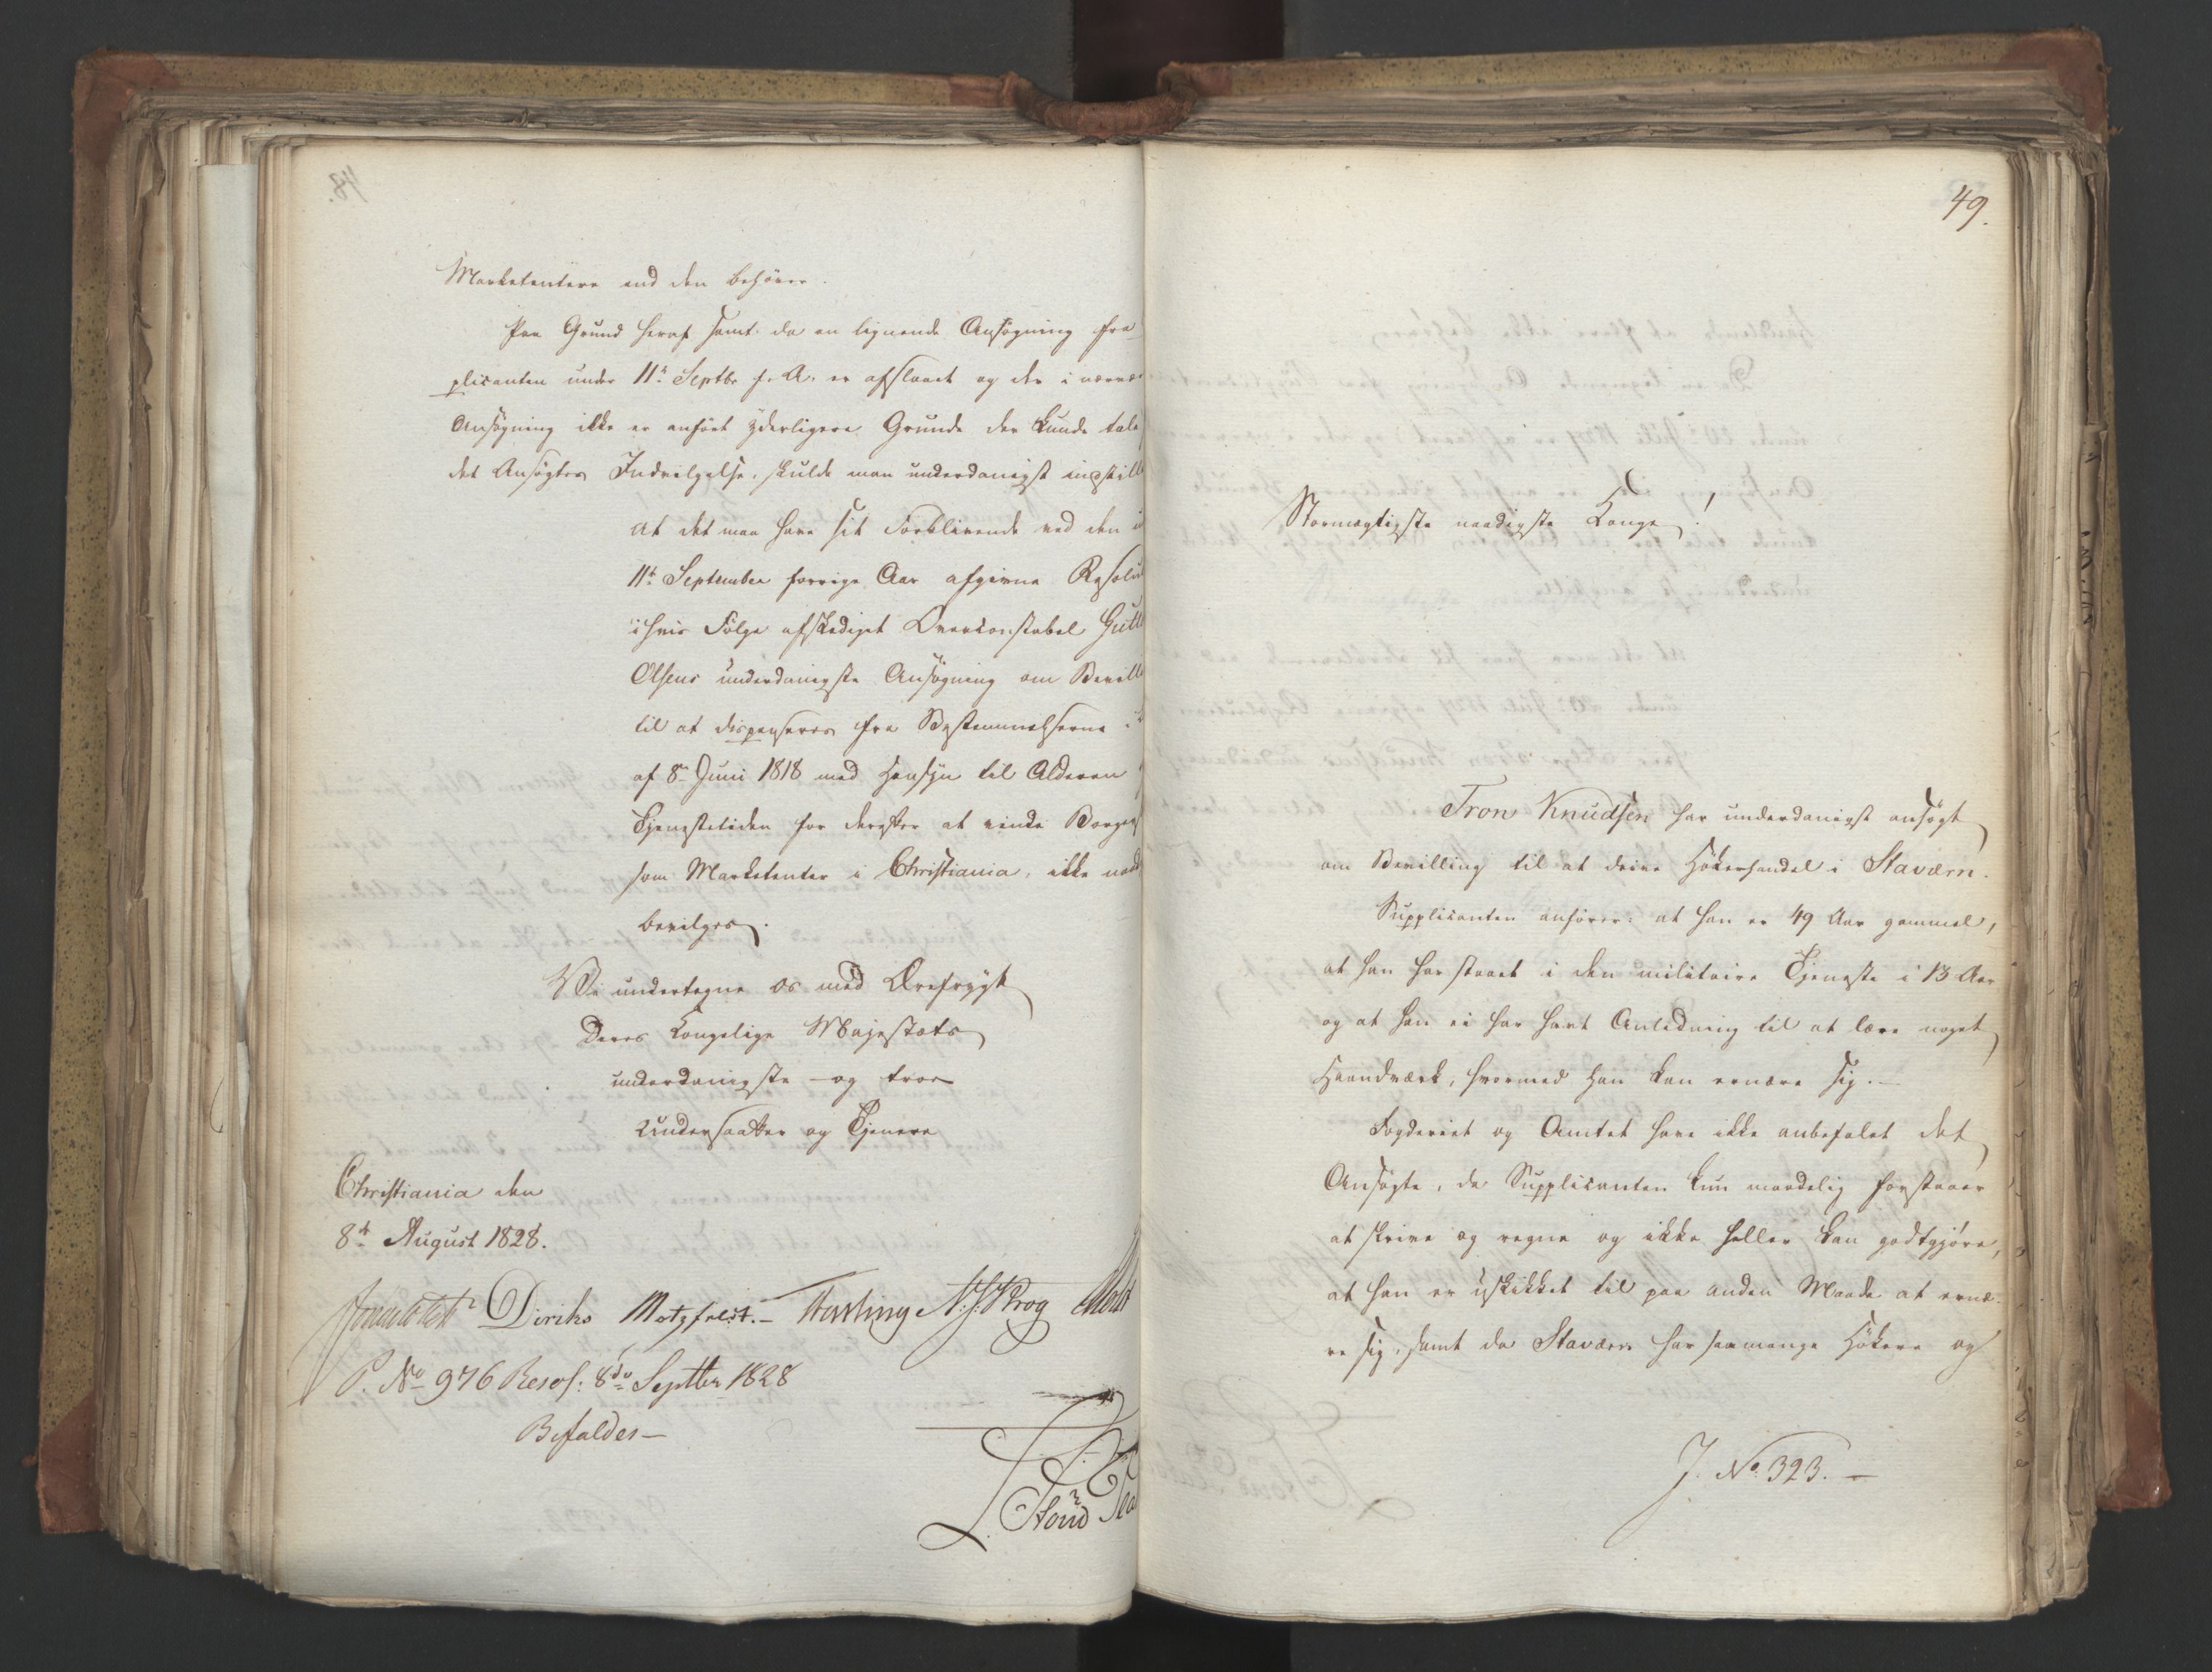 Marketentere end den behøver.
Paa Grund heraf samt da en lignende Ansøgning fra
plicanten under 11te Septbr f. A. er afslaaet og der i nærvæ
Ansøgning ikke er anført yderligere Grunde der kunde tale
det Ansøgtes Indvilgelse, skulde man underdanigst indstille
At det maa have sit Forblivende ved den
11te September forrige Aar afgivne Resolu
i hvis Følge afsskediget Overconstabel Gutt
Olsens underdanigste Ansøgning om Bevill
til at dispenseres fra Bestemmelserne i
af 8de Juni 1818 med Hensyn til Alderen
Tjenestetiden for derefter at vinde Borger
som Marketenter i Christiania, ikke naad
bevilges.
Vi undertegne os med Ærefrygt
Deres Kongelige Majestæts
underdanigste og troe
Undersaatter og Tjenere
Christiania den
8de August 1828.
Diriks Motzfeldt.- N. J. Krog
P. No 976 Resol: 8de Septbr 1828
Bifaldes-
49.
Stormægtigste naadigste Konge!
Tron Knudsen har underdanigst ansøgt
om Bevilling til at drive Høkerhandel i Staværn.
Supplicanten anfører: at han er 49 Aar gammel,
at han har staaet i den militaire Tjeneste i 13 Aar
og at han ei har havt Anledning til at lære noget
Haandværk, hvormed han kan ernære sig.-
Fogderiet og Amtet have ikke anbefalet det
Ansøgte, da Supplicanten kun maadelig forstaaer
at skrive og regne og ikke heller kan godtgjøre,
at han er uskikket til paa anden Maade at ernæ-
re sig, samt da Staværn har saamange Høkere og
J. No 323.-